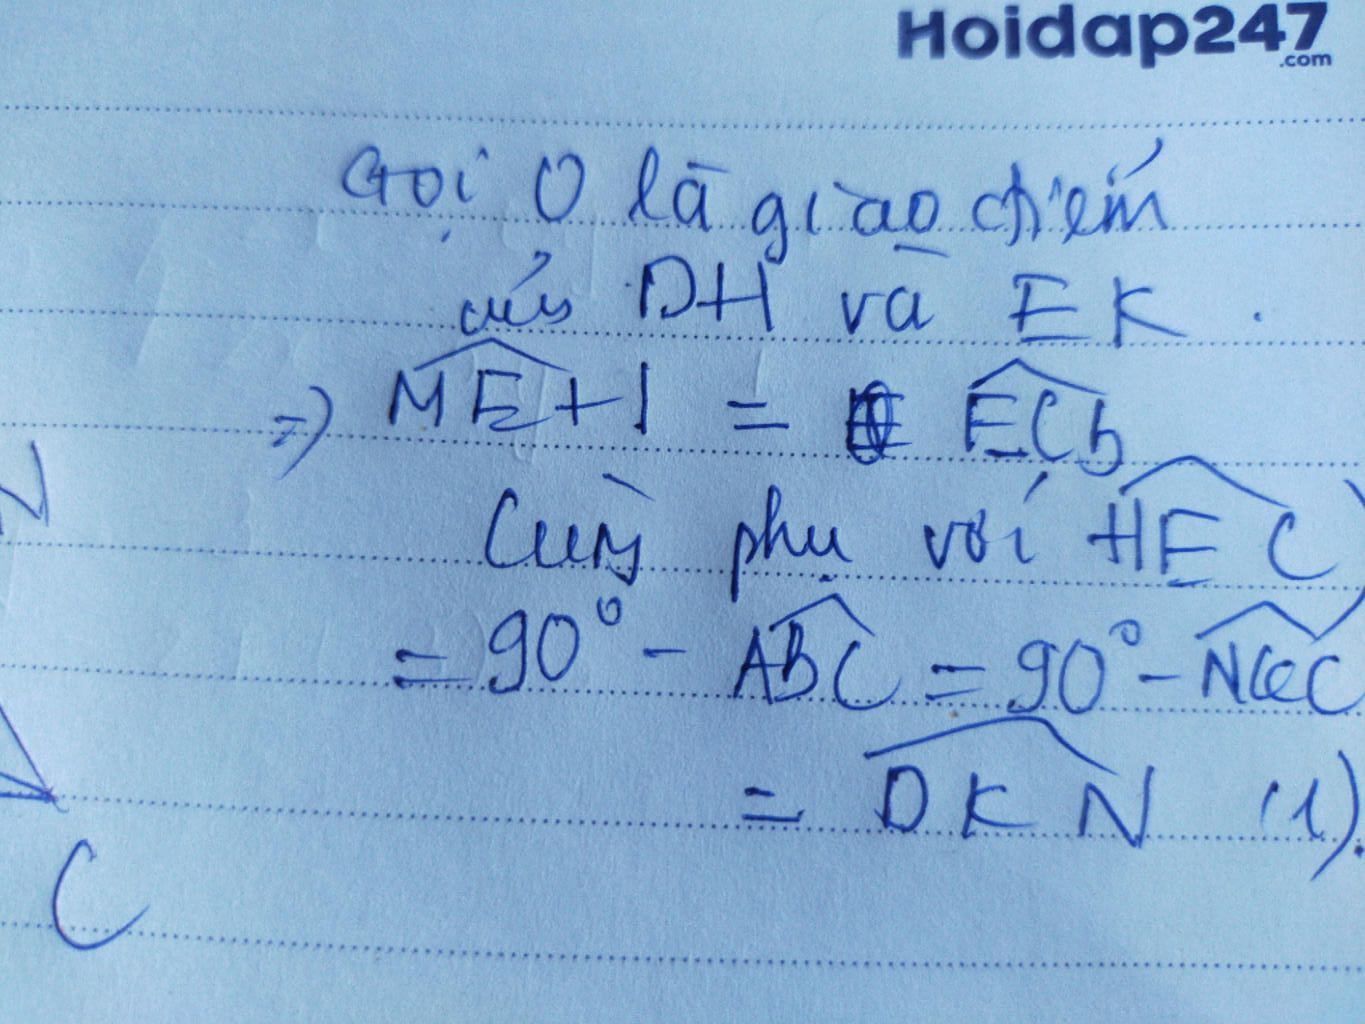 Hoidap247
.com
Gọi O là giao điểm
của DH và EK.
=> MEH = ECB
N
Cùng phụ với HEC)
= 90° - ABC = 90° - NCC
= DKN (1).
C